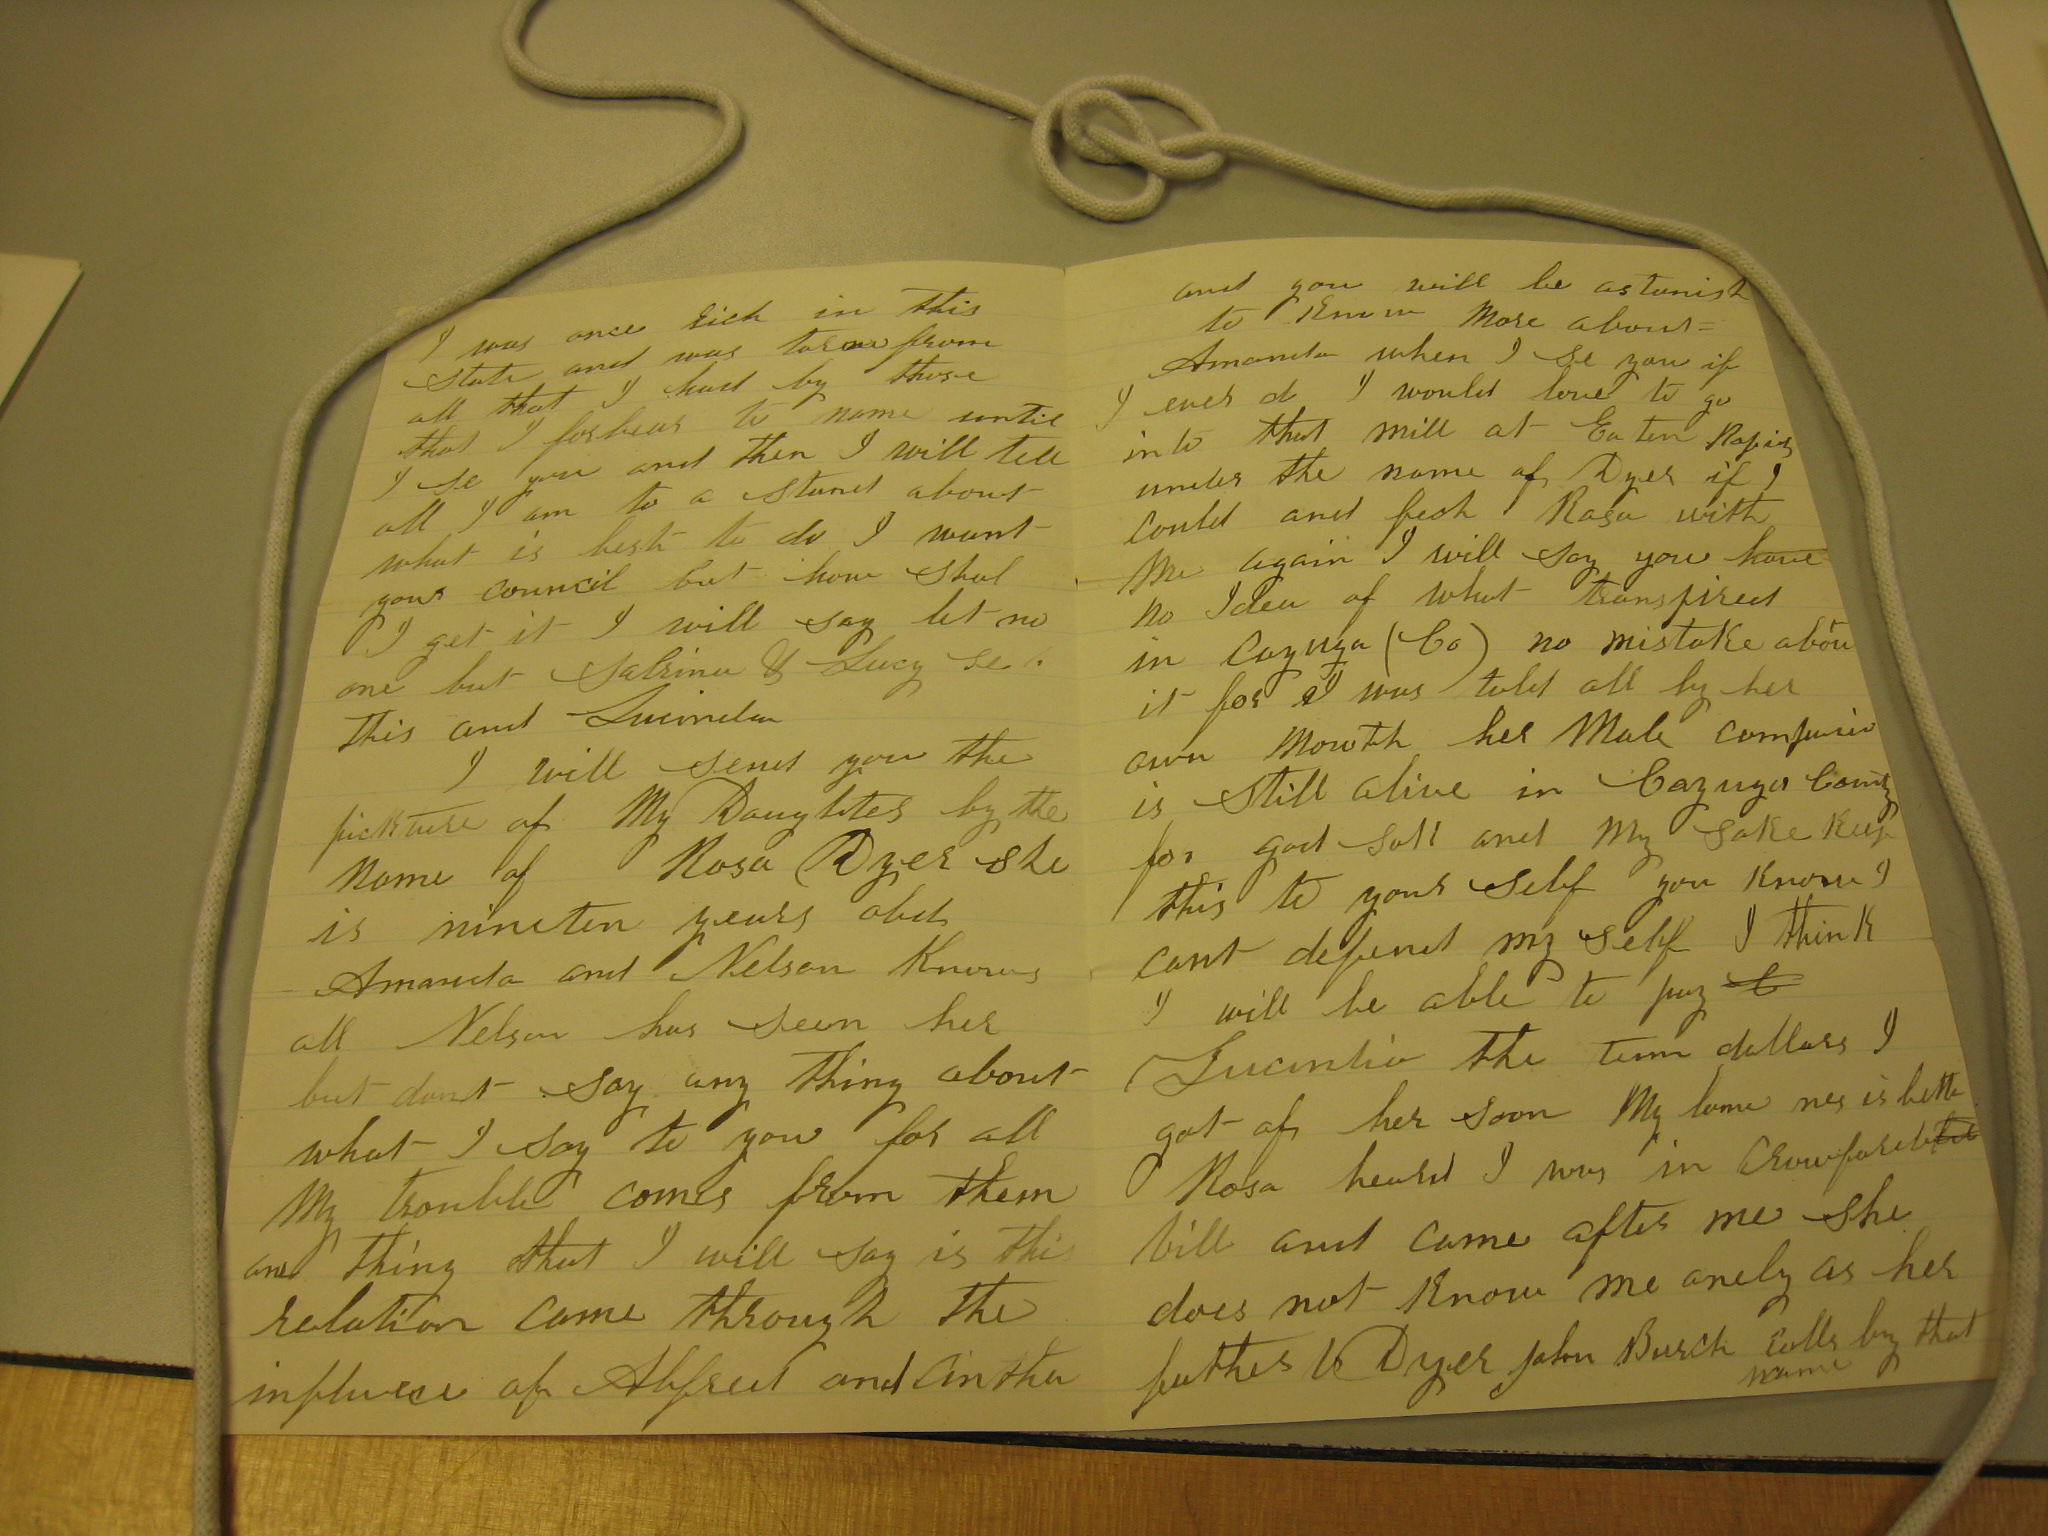 I was once rich in this
state and was torn from
all that I had by those
that I forbear to name untill
I se you and then I will tell
all I am to a stand about
what is best to do I want
your council but how shal
I get it I will say let no
one but Sabrina & Lucy se
this and Lucinda
I will send you the
pickture of My Daughter by the
Name of Rosa Dyer she
is nineten years old
Amanda and Nelson Knows
all Nelson has seen her
but dont say any thing about
what I say to you for all
My trouble comes from them
one thing that I will say is this
relation came through the
influence of Alfred and Cintha
and you will be astonish
to Know More about
Amanda when I se you if
I ever do I would love to go
into that mill at Eaten Rapids
under the name of Dyer if I
could and fech Rosa with
Me again I will say you have
no Idea of what transpired
in Cayuga (Co) no mistake abou
it for I was told all by her
own Mouth her Male companion
is still alive in Cayuga County
for god sak and My sake Keep
this to your self you know I
cant defend my self I think
I will be able to pay
Lucindia the tenn dollars I
got of her soon My lame nes is bette
Rosa heard I was in Crawfords
vill and came after me she
does not Know me onely as her
father V Dyer John Burch calls by that
name